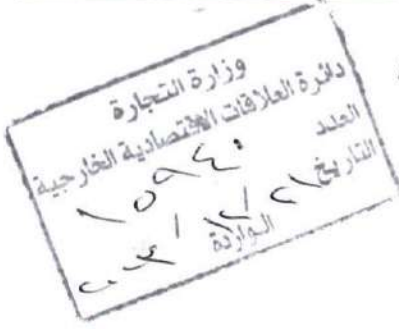 وزارة التجارة
دائرة العلاقات الاقتصادية الخارجية
العدد ١٥٩٤٠
التاريخ ٢١/١٢/
الواردة